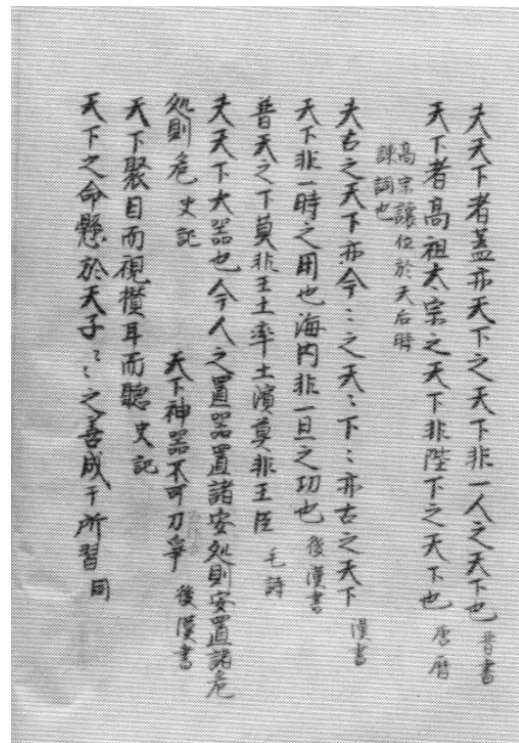 夫天下者蓋亦天下之天下非一人之天下也 晋書
天下者高祖太宗之天下非陛下之天下也 唐暦
高宗譲位於天后時
諫詞也
夫古之天下亦今〻之天〻下〻亦古之天下 漢書
天下非一時之用也海内非一旦之功也 後漢書
普天之下莫非王土率土濱莫非王臣 毛詩
夫天下大器也今人之置器置諸安処則安置諸危
処則危 史記
天下神器不可力爭 後漢書
天下聚目而視攢耳而聽 史記
天下之命懸於天子〻〻之善成于所習 同